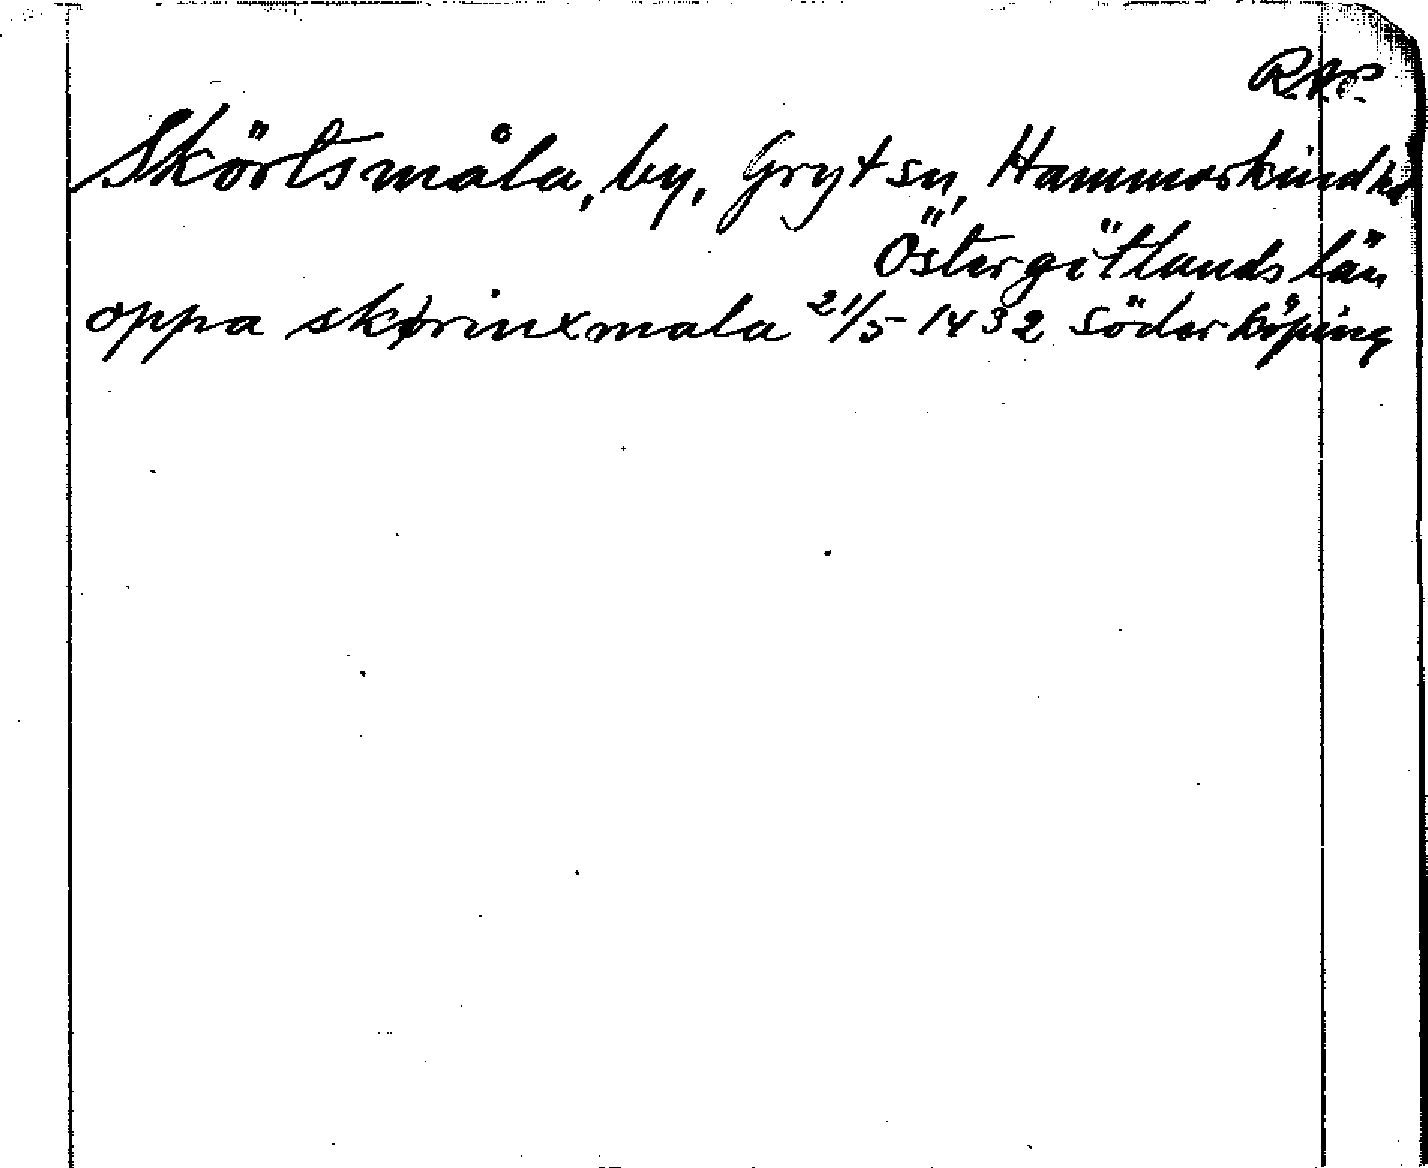 R.A.P.
Skörtsmåla, by, Gryt sn, Hammarkind hd
Östergötlands län
oppa skørinxmala 21/5 1432 Söderköping